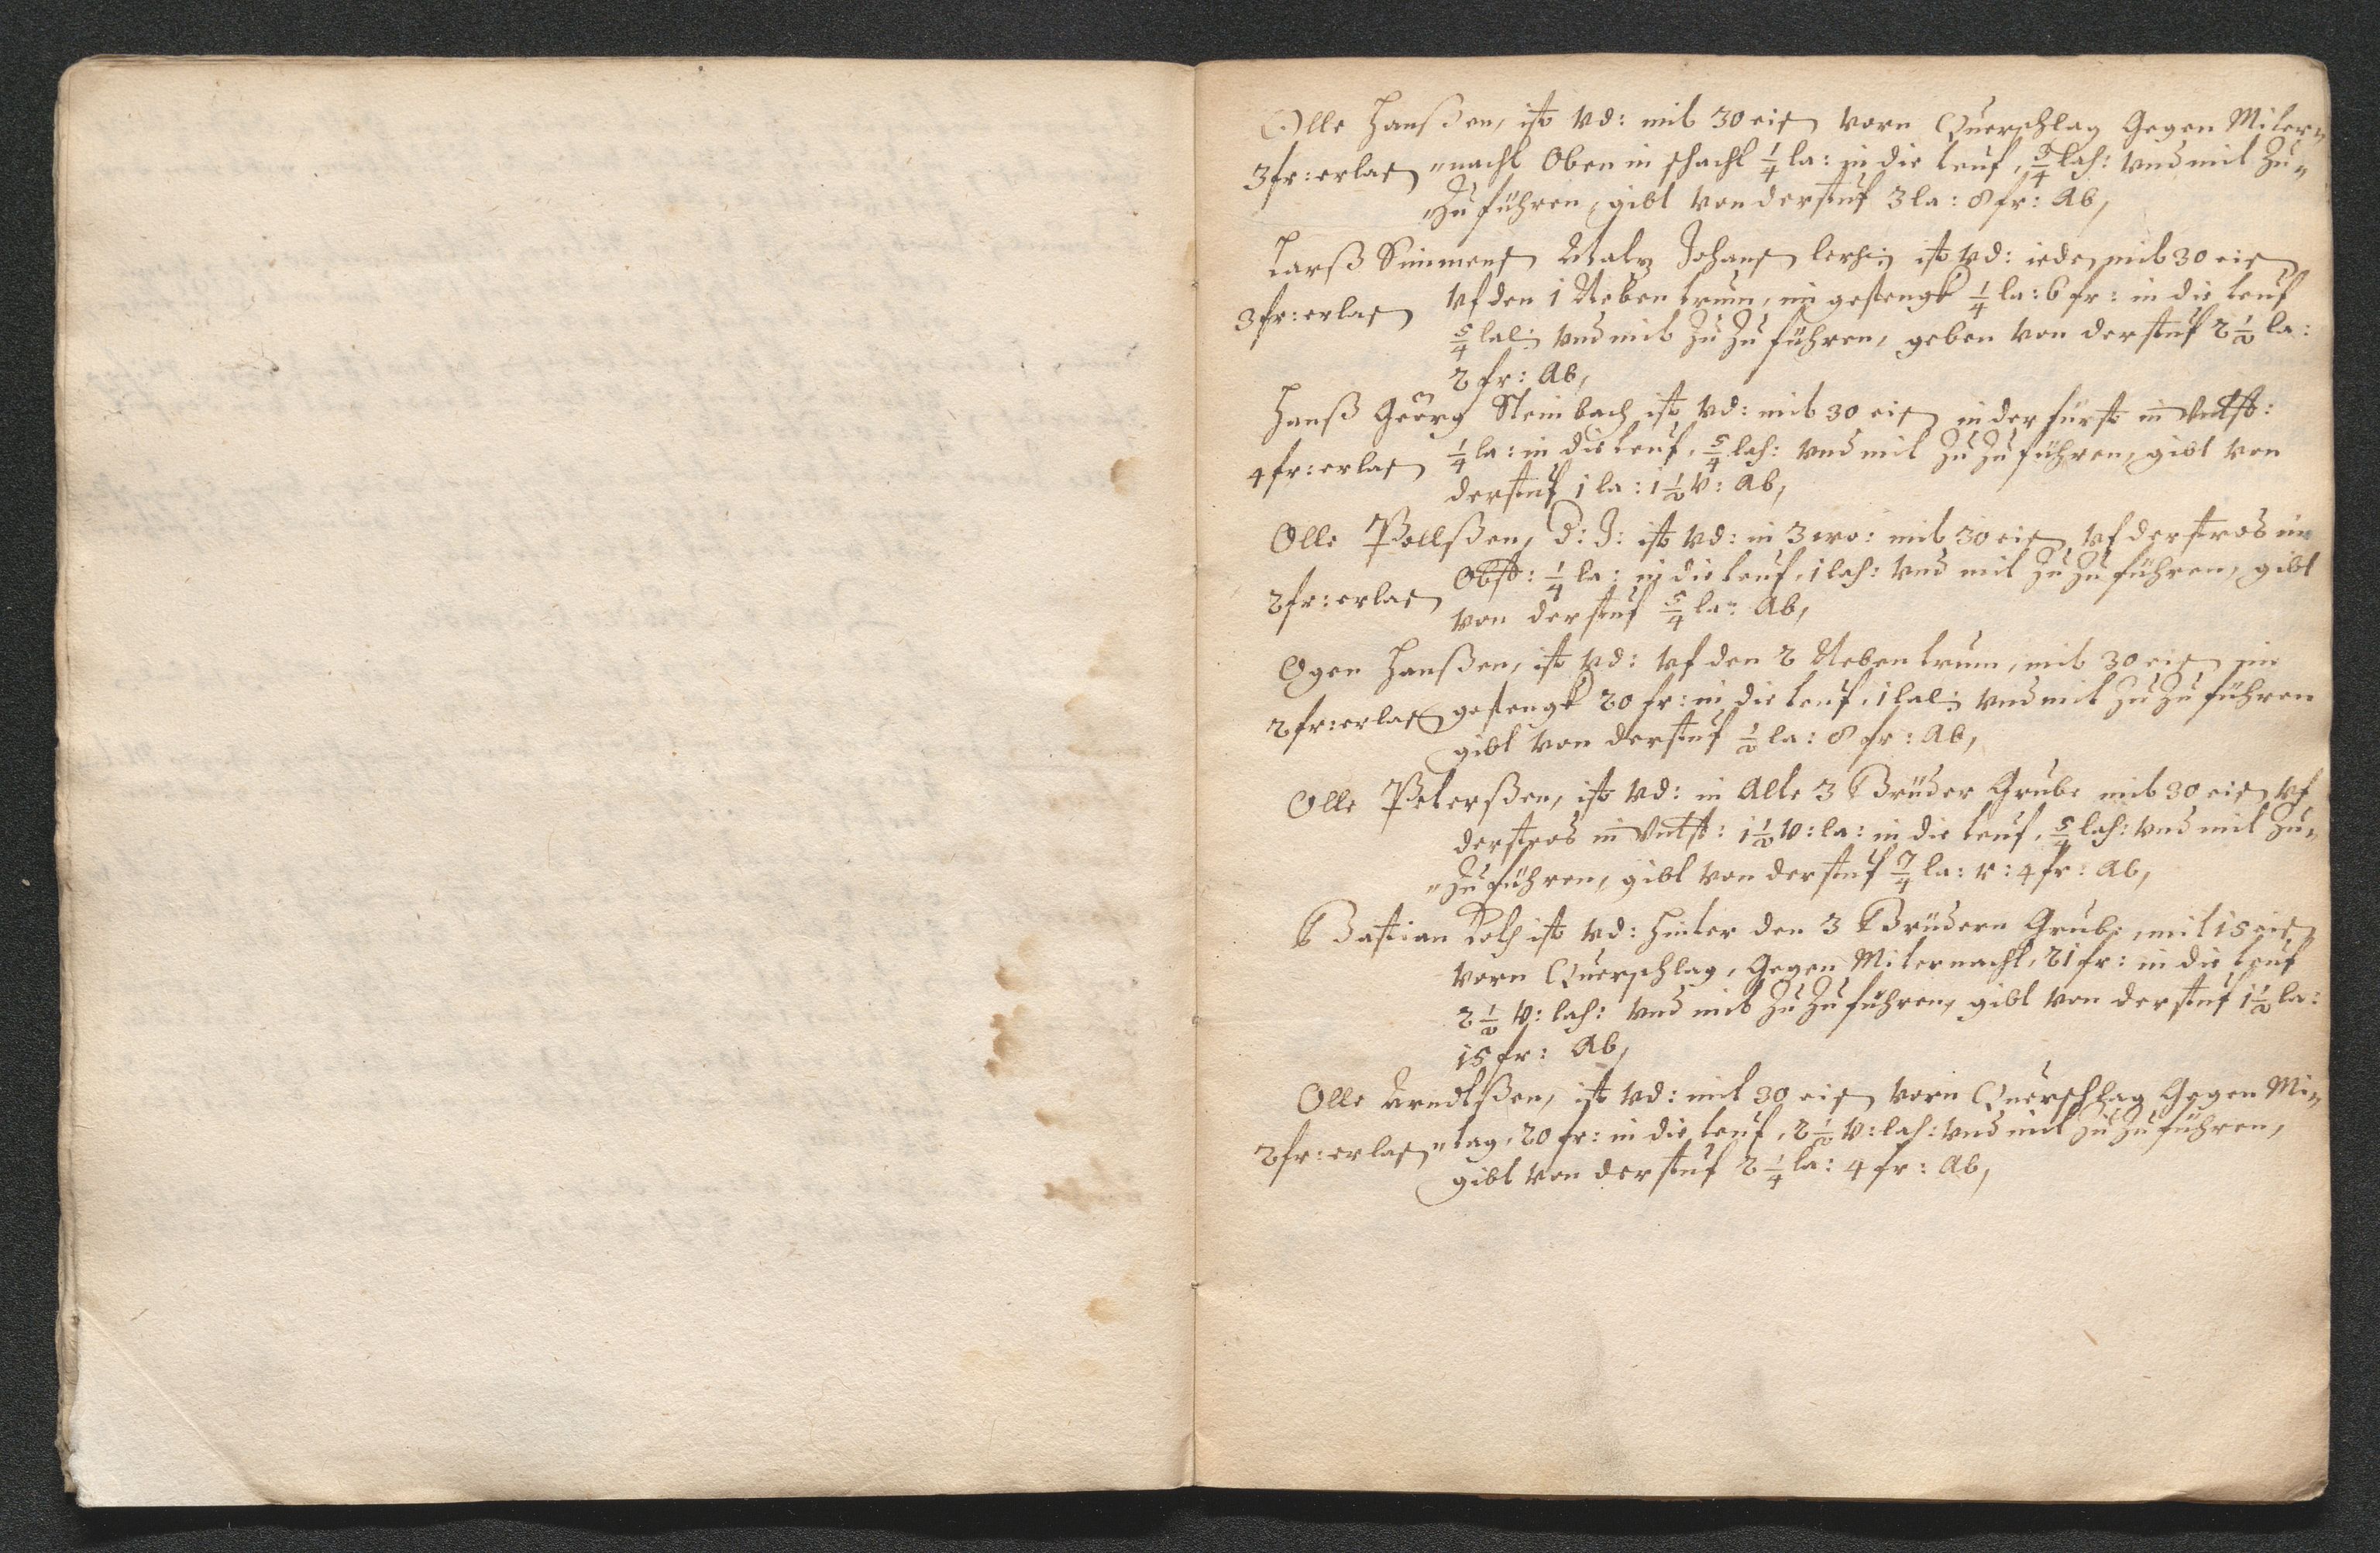 Olle Hanßen, ist vd: mit 30 eis vorn Querschlag Gegen Miter„
3 fr: erlas „nacht Oben in schacht 1/4 la: in die teuf, 3/4 lach: vnd mit zu„
„zu führen, gibt von der stuf 3 la: 8 fr: Ab,
Larß Simmens Johans ist vd: ieder mit 30 eis
3 fr: erlas vf den 1 Neben trum, im gesengk 1/4 la: 6 fr: in die teuf
5/4 lach: vnd mit zu zu führen, geben von der stuf 2 1/2 la:
2 fr: Ab,
Hanß Georg Steinbach ist vd: mit 30 eis in der fürst in
4 fr: erlas 1/4 la: in die teuf, 5/4 lach: vnd mit zu zu führen, gibt von
der stuf 1 la: 1 1/2 v: Ab,
Olle Pollßen, D: J: ist vd: in 3 wo: mit 30 eis vf der stros im
2 fr: erlas Obst: 1/4 la: in die teuf, 1 lach: vnd mit zu zu führen, gibt
von der stuf 5/4 la: Ab,
Ogen Hanßen, ist vd: vf den 2 Neben trum, mit 30 eis im
2 fr: erlas gesengk 20 fr: in die teuf, 1 lach: vnd mit zu zu führen
gibt von der stuf 1/2 la: 8 fr: Ab,
Olle Peterßen, ist vd: in Alte 3 Brüder Grube mit 30 eis vf
der stros in 1 1/2 v: la: in die teuf, 5/4 lach: vnd mit zu„
„zu führen, gibt von der stuf 7/4 la: v: 4 fr: Ab,
Bastian ist vd: hinter den 3 Brüdern Grube, mit 15 eis
vorn Querschlag, Gegen Miternacht, 21 fr: in die teuf
2 1/2 v: lach: vnd mit zu zu führen, gibt von der stuf 1 1/2 la:
15 fr: Ab,
Olle Arndtßen, ist vd: mit 30 eis vorn Querschlag Gegen Mi„
2 fr: erlas „tag, 20 fr: in die teuf, 2 1/2 v: lach: vnd mit zu zu führen,
gibt von der stuf 2 1/4 la: 4 fr: Ab,